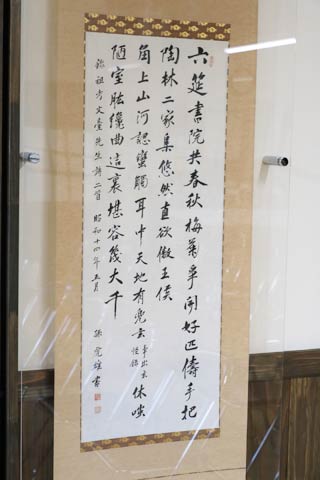 六筵書院共春秋梅菊爭開好匹儔手把
陶林二家集悠然直欲傲王侯
角上山河認蠻觸耳中天地有兜玄事出玄怪錄休嗤
陋室肱纔曲這裏堪容幾大千
錄祖考文臺先生詩二首 昭和十四年五月
孫 雄書